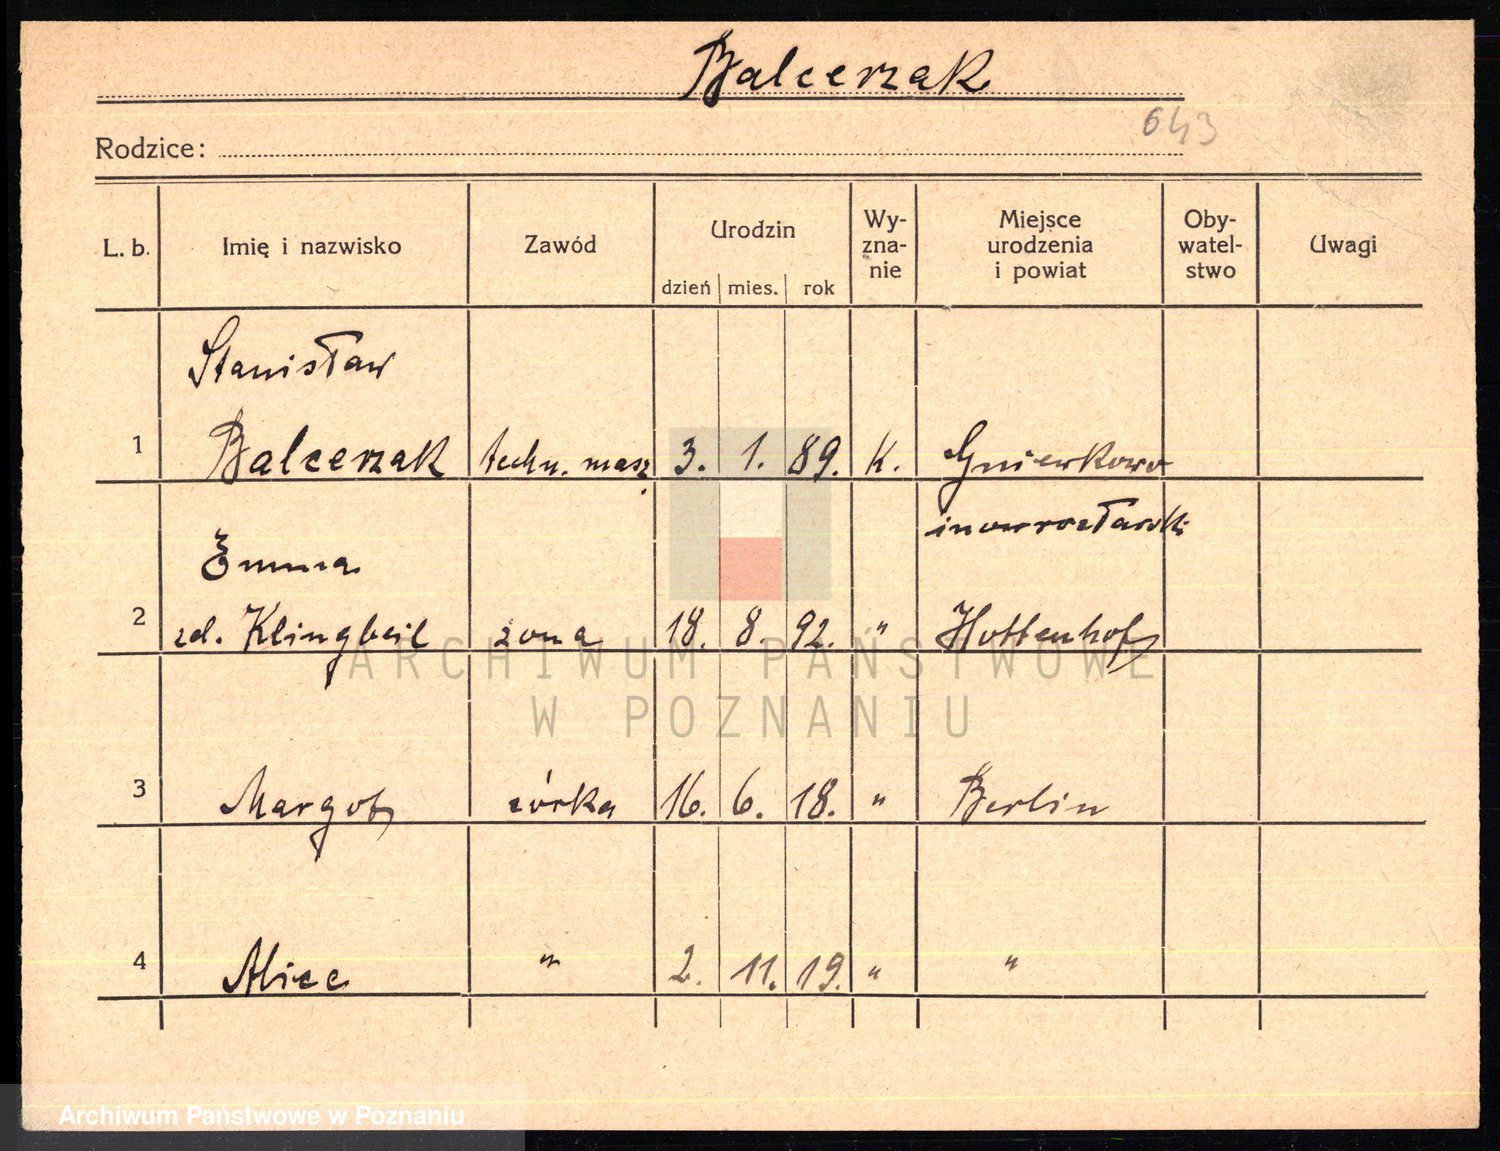 Balcerzak
643
Rodzice:
L. b. Imię i nazwisko Zawód Urodzin dzień mies. rok Wy-zna-nie Miejsce urodzenia i powiat Oby-watel-stwo Uwagi
Stanisław
1 Balcerzak techn. masz. 3. 1. 89. K. Gniewkowo
inowrocławski
Emma
2 zd. Klingbeil żona 18. 8. 92. " Hottenhof
ARCHIWUM PAŃSTWOWE
W POZNANIU
3 Margot córka 16. 6. 18. " Berlin
4 Alice " 2. 11. 19. " "
Archiwum Państwowe w Poznaniu